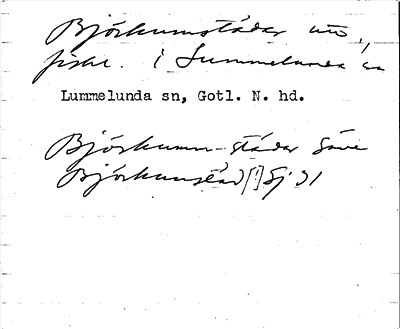 Björkumstädar utv.,
fiske. i Lummelunda sn
Lummelunda sn, Gotl. N. hd.
Björkumm-städar Säve
Björkumstäd [!] Sj 31